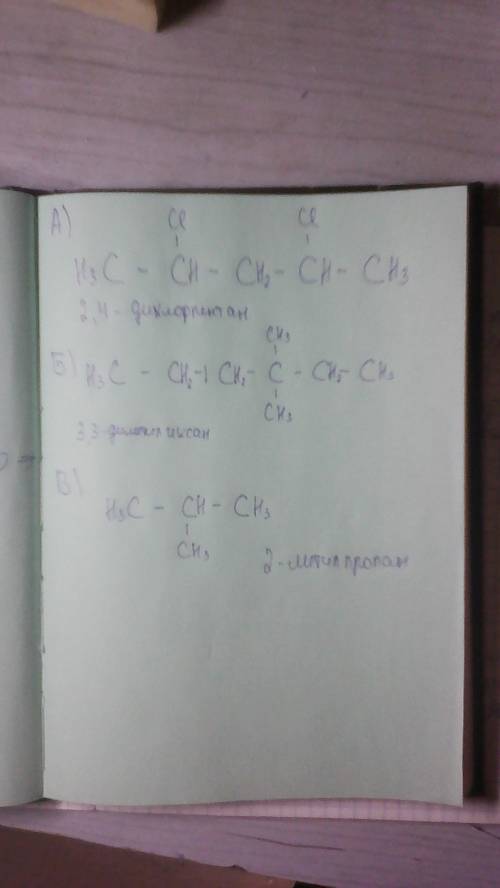 А)
Cl Cl
H₃C - CH - CH₂ - CH - CH₃
2,4 - дихлорпентан
CH₃
Б) H₃C - CH₂ - CH₂ - C - CH₂ - CH₃
CH₃
3,3-диметилгексан
В)
H₃C - CH - CH₃
CH₃
2-метилпропан